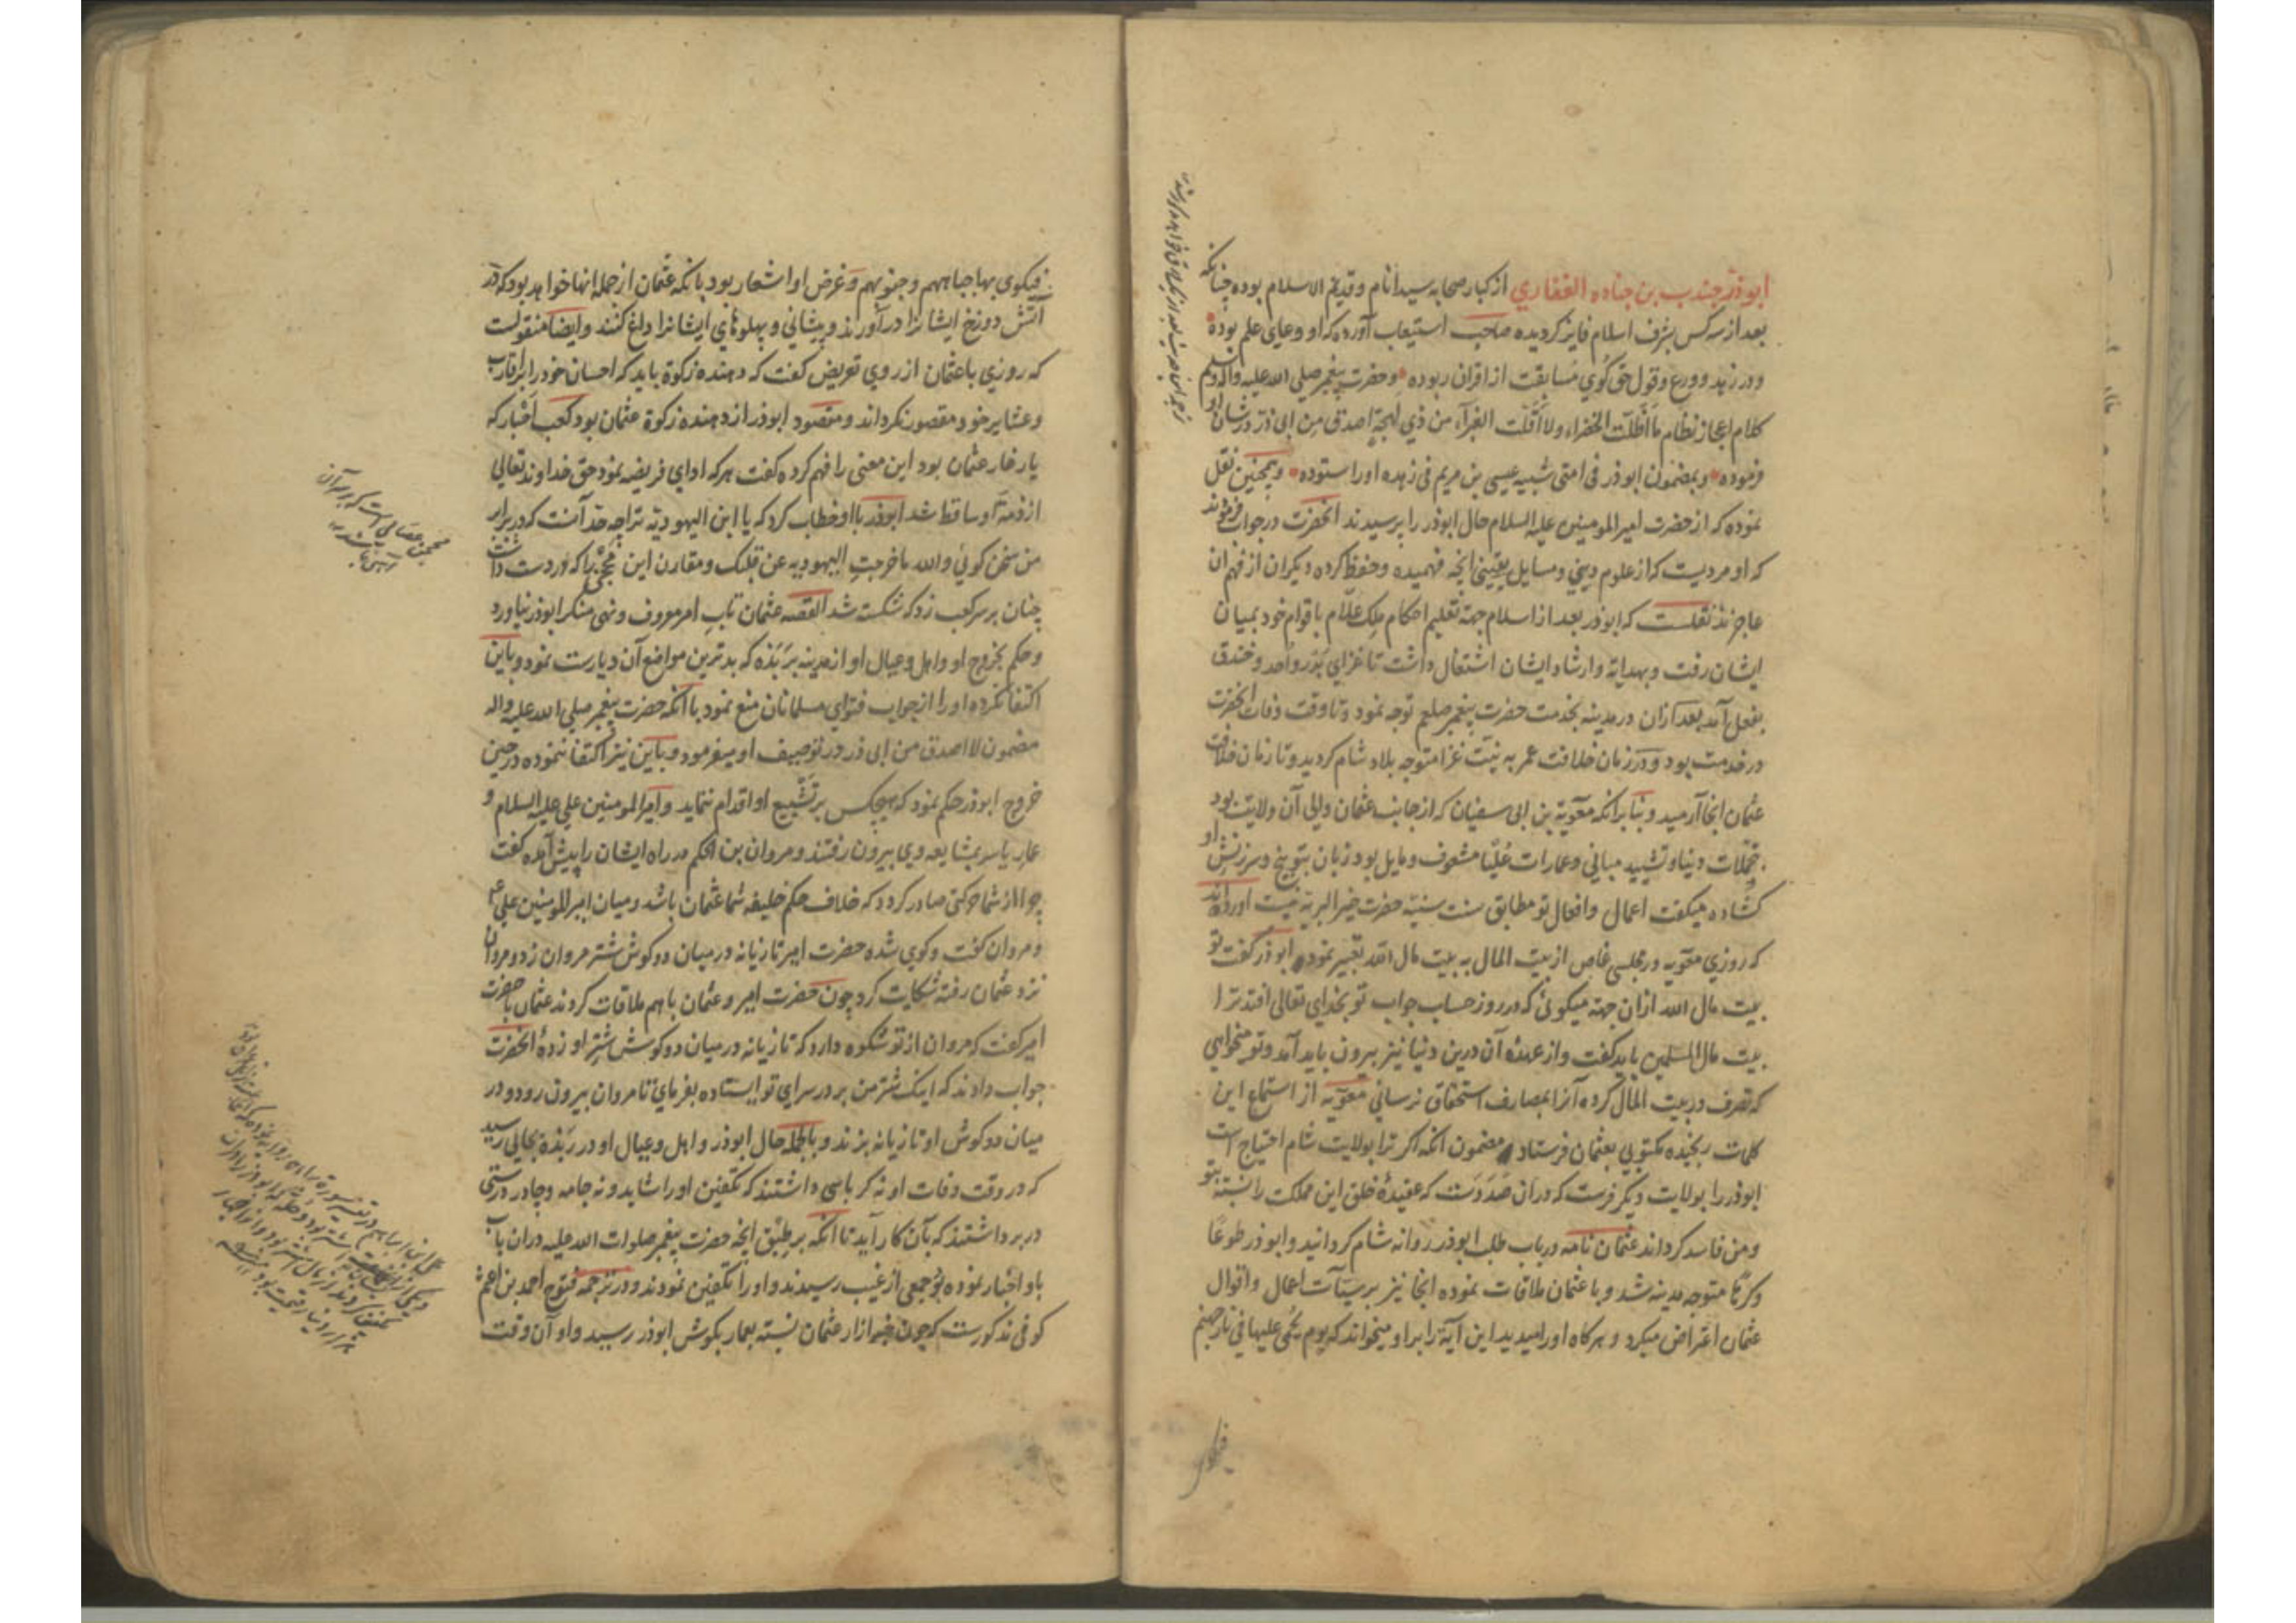 ابوذر جندب بن جناده الغفاري از کبار صحابه سید انام و قدیم الاسلام بوده چنانکه
بعد از سه کس بشرف اسلام فایز کردیده صاحب استیعاب آورده که او وعای علم بوده
و در زهد و ورع و قول حق کوي مسابقت از اقران ربوده و حضرت پیغمبر صلی الله علیه واله وسلم
کلام اعجاز نظام ما اظلت الخضراء ولا اقلت الغبرآء من ذي لهجة اصدق من ابی ذر در شان او
فرموده و بمضمون ابوذر فی امتی شبیه عیسی بن مریم فی زهده او را ستوده و همچنین نقل
نموده که از حضرت امیر المومنین علیه السلام حال ابوذر را پرسیدند انحضرت در جواب فرمودند
که او مردیست که از علوم دیني و مسایل یقینی انچه فهمیده و حفظ کرده دیکران از فهم ان
عاجزند نقلست که ابوذر بعد از اسلام جهة تعلیم احکام ملک علام با قوام خود بمیان
ایشان رفت و بهدایة و ارشاد ایشان اشتغال داشت تا غزاي بدر و احد و خندق
بفعل آمد بعد ازان در مدینه بخدمت حضرت پیغمبر صلعم توجه نمود و تا وقت وفات انحضرت
در خدمت بود و در زمان خلافت عمر به نیت غزا متوجه بلاد شام کردید و تا زمان خلافت
عثمان انجا آرمید و بنا برانکه معویة بن ابی سفیان که از جانب عثمان والی آن ولایت بود
بتجملات دنیا و تشیید مباني و عمارات علیا مشعوف و مایل بود زبان بتوبیخ و سرزنش او
کشاده میکفت اعمال و افعال تو مطابق سنت سنیه حضرت خیر البریه نیست آورده‌اند
که روزي معویه در مجلسی خاص از بیت المال به بیت مال الله تعبیر نمود ابوذر کفت تو
بیت مال الله ازان جهة میکوئی که در روز حساب جواب تو بخداي تعالی افتد ترا
بیت مال المسلمین باید کفت و از عهده آن درین دنیا نیز بیرون باید آمد و تو میخواهي
که تصرف در بیت المال کرده آنرا بمصارف استحقاق نرساني معویه از استماع این
کلمات رنجیده مکتوبي بعثمان فرستاد مضمون انکه اکر ترا بولایت شام احتیاج است
ابوذر را بولایت دیکر فرست که دران صددست که عقیدهٔ خلق این مملکت را نسبت بتو
و من فاسد کرداند عثمان نامه در باب طلب ابوذر روانه شام کردانید و ابوذر طوعا
و کرها متوجه مدینه شد و با عثمان ملاقات نموده انجا نیز بر سیئات اعمال و اقوال
عثمان اعتراض میکرد و هرکاه او را میدید این آیة را برا و میخواند که یوم یحمی علیها فی نار جهنم
فتکوی
فتکوی بها جباههم و جنوبهم و غرض او اشعار بود بانکه عثمان از جمله انها خواهد بود که در
آتش دوزخ ایشانرا در آورند و پیشاني و پهلوهاي ایشانرا داغ کنند و ایضا منقولست
که روزي با عثمان از روي تعریض کفت که دهنده زکوة باید که احسان خود را بر اقارب
و عشایر خود مقصور نکرداند و مقصود ابوذر از دهنده زکوة عثمان بود کعب احبار که
یار غار عثمان بود این معنی را فهم کرده کفت هر که اداي فریضه نمود حق خداوند تعالی
از ذمهٔ او ساقط شد ابوذر با او خطاب کرد که یا ابن الیهودیه ترا چه حد آنست که در برابر
من سخن کوئي والله ما خرجت الیهودیه عن قلبک و مقارن این محجنی را که در دست داشت
چنان بر سر کعب زد که شکسته شد القصه عثمان تاب امر معروف و نهی منکر ابوذر نیاورد
و حکم بخروج او و اهل و عیال او از مدینه بربذه که بدترین مواضع آن دیارست نمود و باین
اکتفا نکرده او را از جواب فتواي مسلمانان منع نمود با انکه حضرت پیغمبر صلی الله علیه واله
مضمون لا اصدق من ابی ذر در توصیف او میفرمود و باین نیز اکتفا ننموده در حین
خروج ابوذر حکم نمود که هیچکس بر تشییع او اقدام ننماید و امیر المومنین علی علیه السلام و
عمار یاسر بمشایعه وي بیرون رفتند و مروان بن الحکم در راه ایشان را پیش آمده کفت
چرا از شما حرکتی صادر کردد که خلاف حکم خلیفه شما عثمان باشد و میان امیر المومنین علی ع
و مروان کفت و کوي شده حضرت امیر تازیانه در میان دو کوش شتر مروان زد و مروان
نزد عثمان رفته شکایت کرد چون حضرت امیر و عثمان با هم ملاقات کردند عثمان با حضرت
امیر کفت که مروان از تو شکوه دارد که تازیانه در میان دو کوش شتر او زدهٔ انحضرت
جواب دادند که اینک شتر من بر در سراي تو ایستاده بفرماي تا مروان بیرون رود و در
میان دو کوش او تازیانه بزند و بالجمله حال ابوذر و اهل و عیال او در ربذه بجائی رسید
که در وقت وفات او نه کرباسی داشتند که تکفین او را شاید و نه جامه و چادر درستی
در بر داشتند که بآن کار آید تا انکه بر طبق انچه حضرت پیغمبر صلوات الله علیه دران باب
باو اخبار نموده بود جمعی از غیب رسیدند و او را تکفین نمودند و در ترجمه فتوح احمد بن اعثم
کوفی مذکورست که چون خبر ازار عثمان نسبت بعمار بکوش ابوذر رسید و او آن وقت
محجن عصایی است که در سر آن
آهن باشد